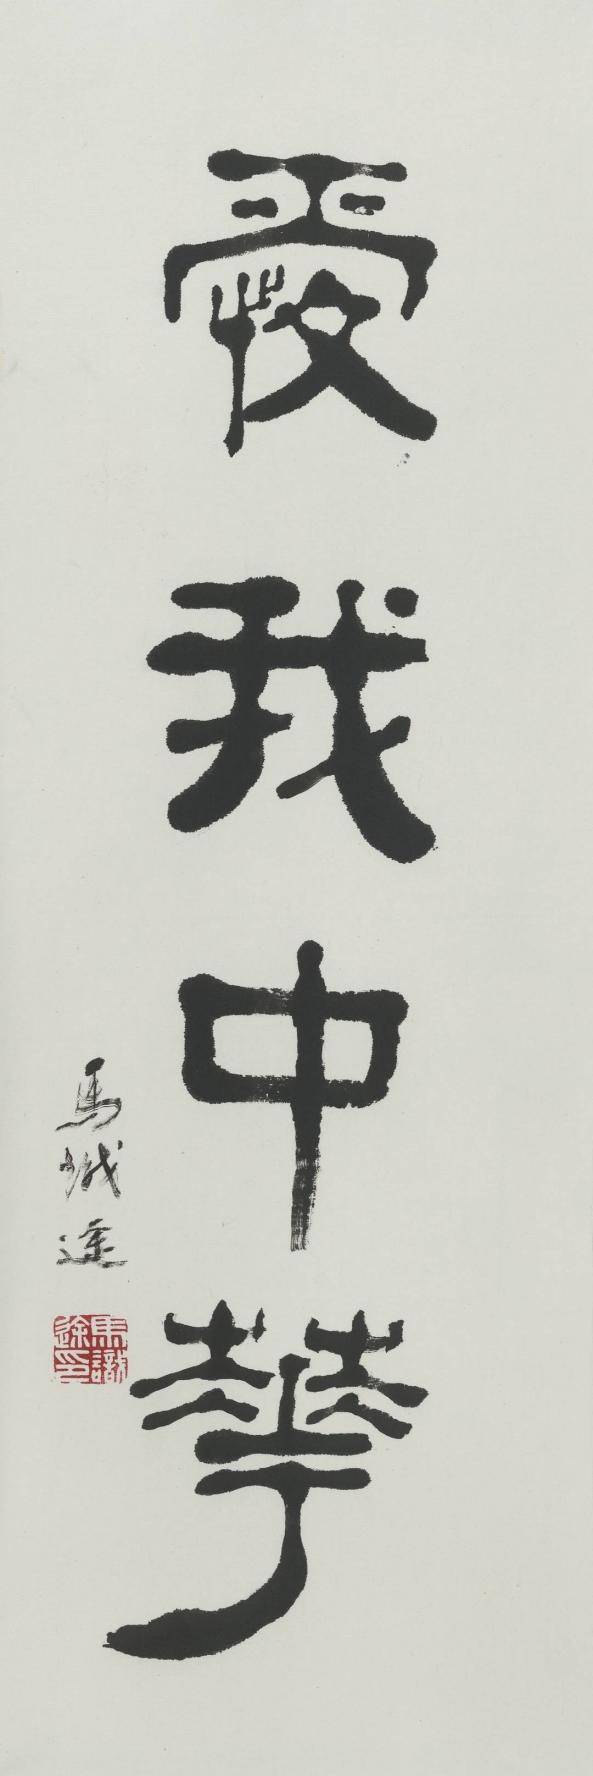 愛我中華
馬識途
馬識途印